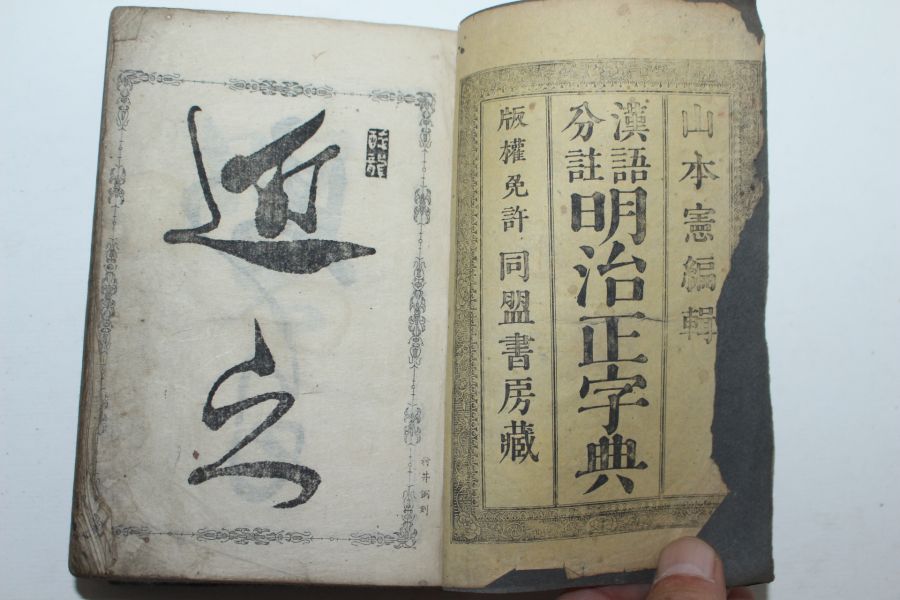 山本憲編輯
漢語
分註
明治正字典
版權免許 同盟書房藏
近之